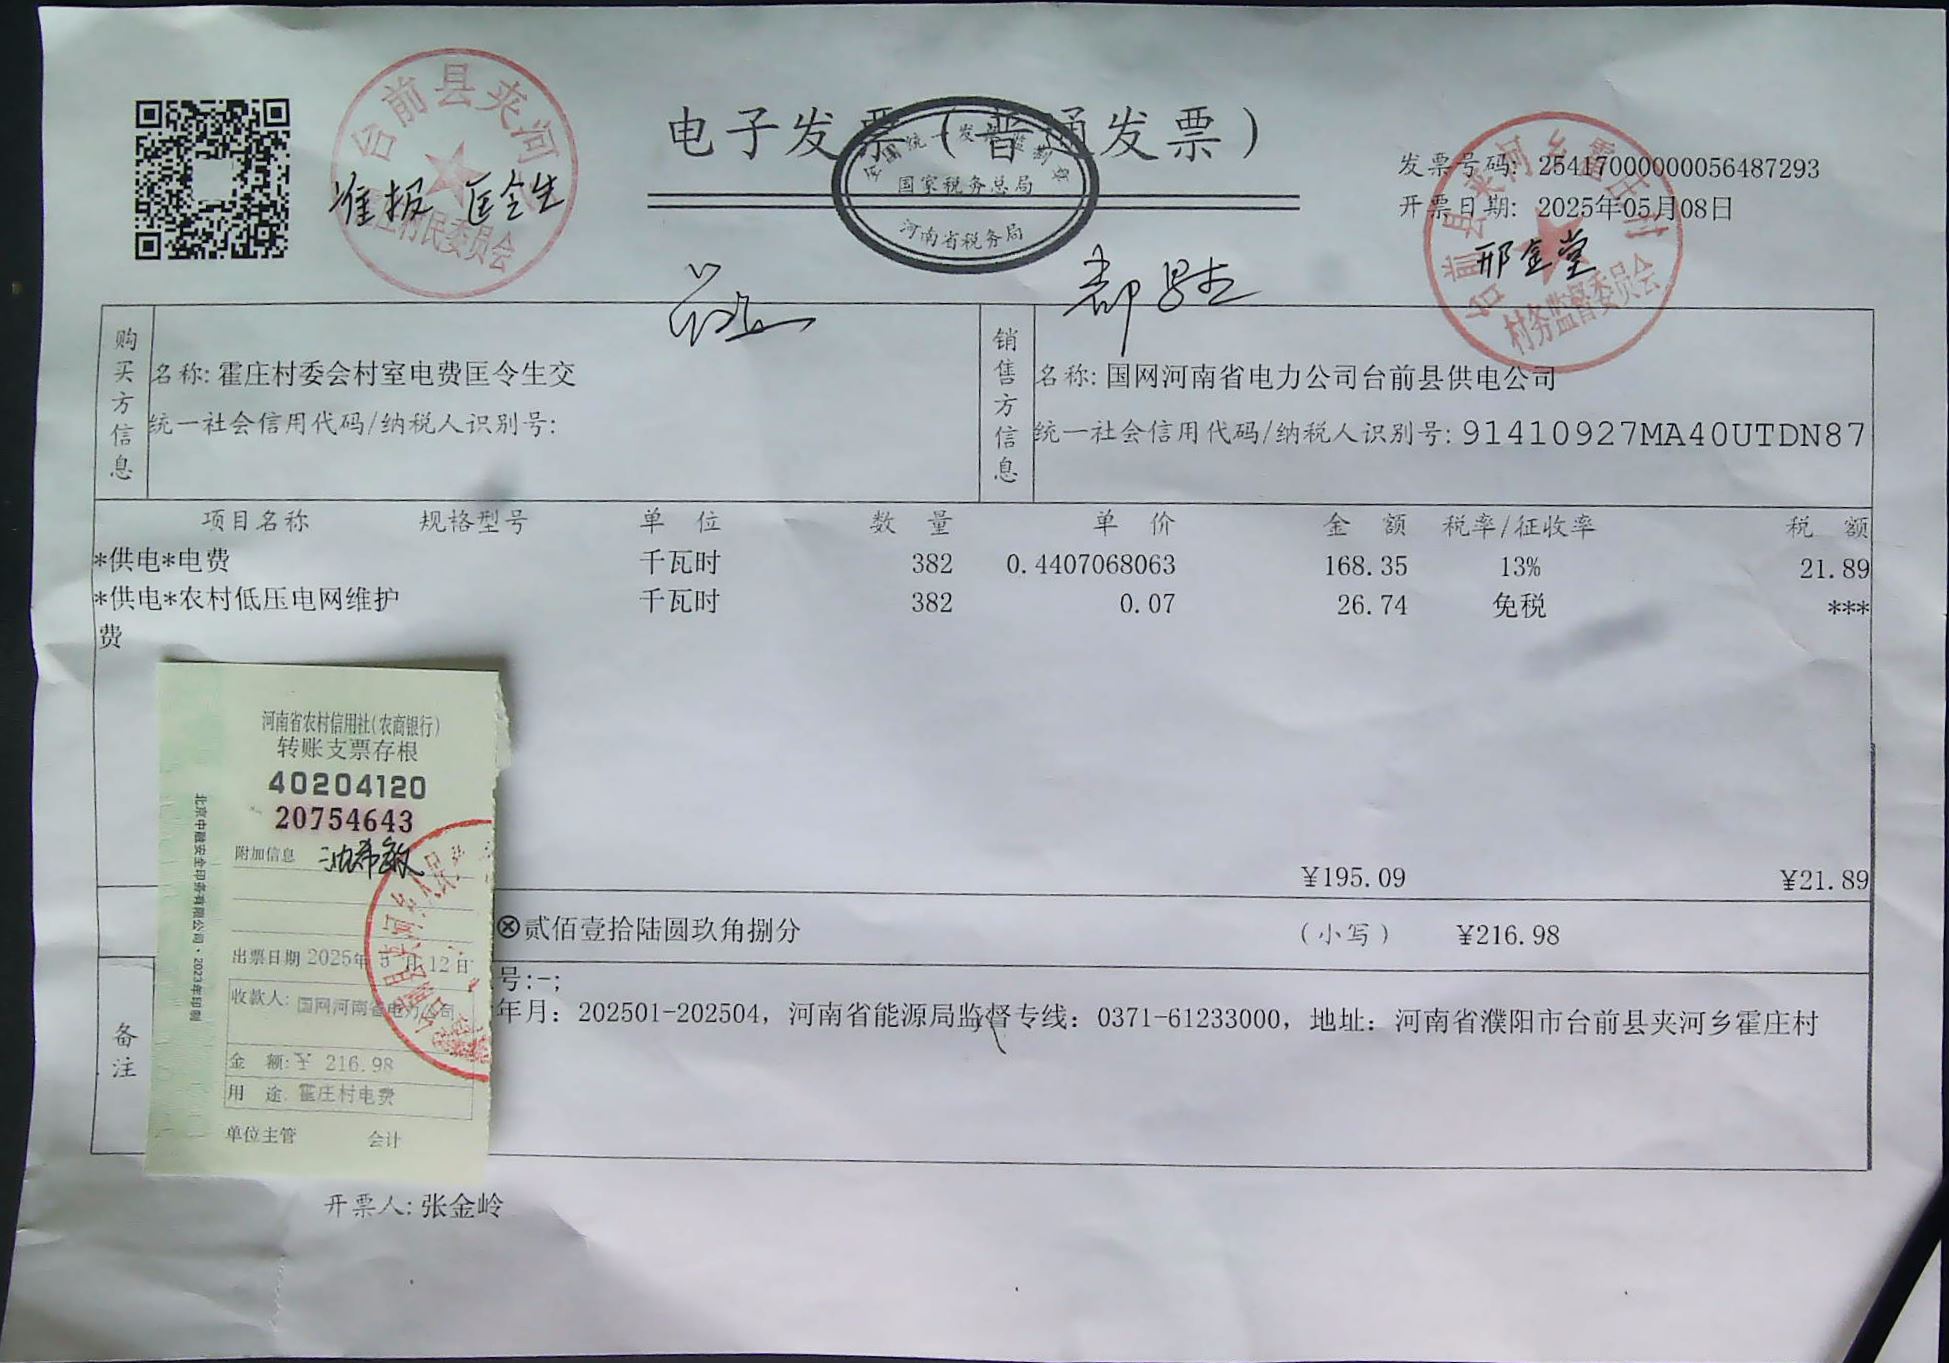 电子发票（普通发票）
全国统一发票监制章
国家税务总局
河南省税务局
发票号码: 25417000000056487293
开票日期: 2025年05月08日
台前县夹河
庄村民委员会
准报 匡令生
台前县夹河乡霍庄村
村务监督委员会
邢金堂
购买方信息
名称: 霍庄村委会村室电费匡令生交
统一社会信用代码/纳税人识别号:
销售方信息
名称: 国网河南省电力公司台前县供电公司
统一社会信用代码/纳税人识别号: 91410927MA40UTDN87
项目名称 规格型号 单 位 数 量 单 价 金 额 税率/征收率 税 额
*供电*电费 千瓦时 382 0.4407068063 168.35 13% 21.89
*供电*农村低压电网维护 千瓦时 382 0.07 26.74 免税 ***
费
¥195.09 ¥21.89
⊗贰佰壹拾陆圆玖角捌分 （小写） ¥216.98
备注
号:-;
年月: 202501-202504, 河南省能源局监督专线: 0371-61233000, 地址: 河南省濮阳市台前县夹河乡霍庄村
河南省农村信用社(农商银行)
转账支票存根
40204120
20754643
附加信息
出票日期 2025年 5月 12日
收款人: 国网河南省电力公司
金 额: ¥ 216.98
用 途 霍庄村电费
单位主管 会计
北京中融安全印务有限公司·2023年印制
开票人: 张金岭